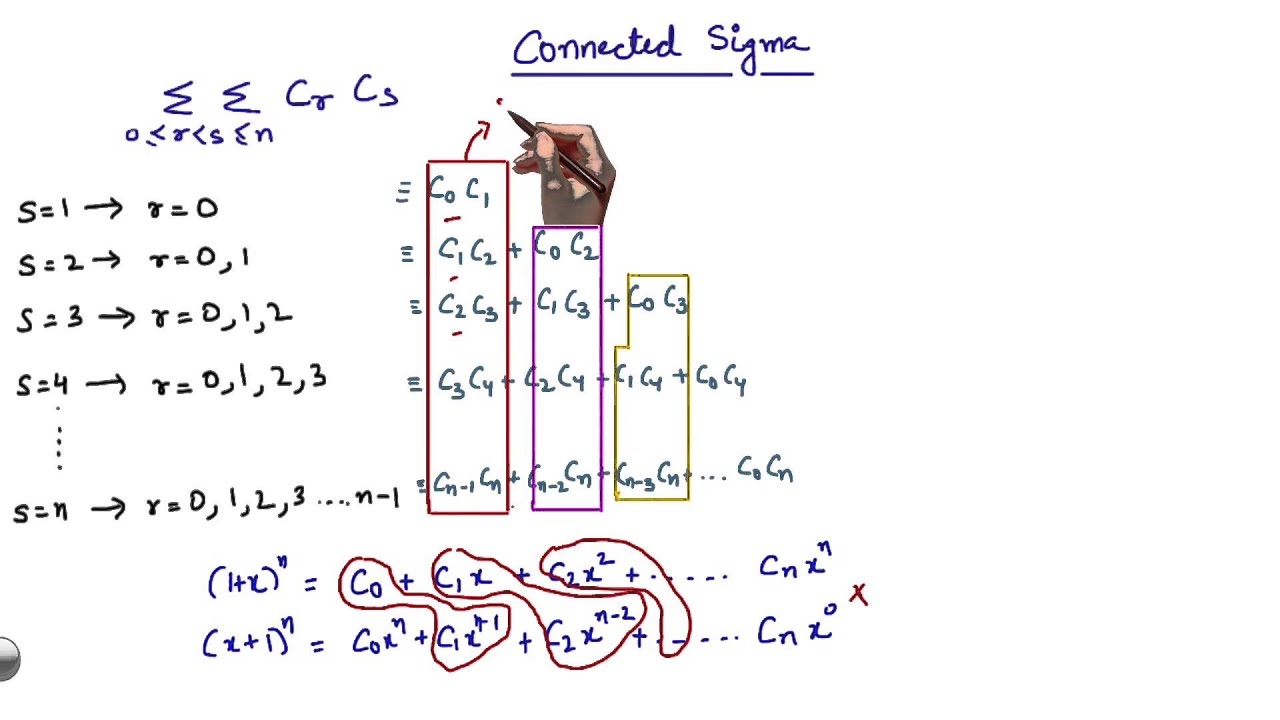 Connected Sigma
Σ Σ Cr Cs
0≤r<s≤n
s=1 → r=0 ≡ C₀ C₁
s=2 → r=0,1 ≡ C₁ C₂ + C₀ C₂
s=3 → r=0,1,2 ≡ C₂ C₃ + C₁ C₃ + C₀ C₃
s=4 → r=0,1,2,3 ≡ C₃ C₄ + C₂ C₄ + C₁ C₄ + C₀ C₄
s=n → r=0,1,2,3....n-1 ≡ Cₙ₋₁ Cₙ + Cₙ₋₂ Cₙ + Cₙ₋₃ Cₙ + ... C₀ Cₙ
(1+x)ⁿ = C₀ + C₁ x + C₂ x² + ...... Cₙ xⁿ
(x+1)ⁿ = C₀ xⁿ + C₁ xⁿ⁻¹ + C₂ xⁿ⁻² + ...... Cₙ x⁰ ×